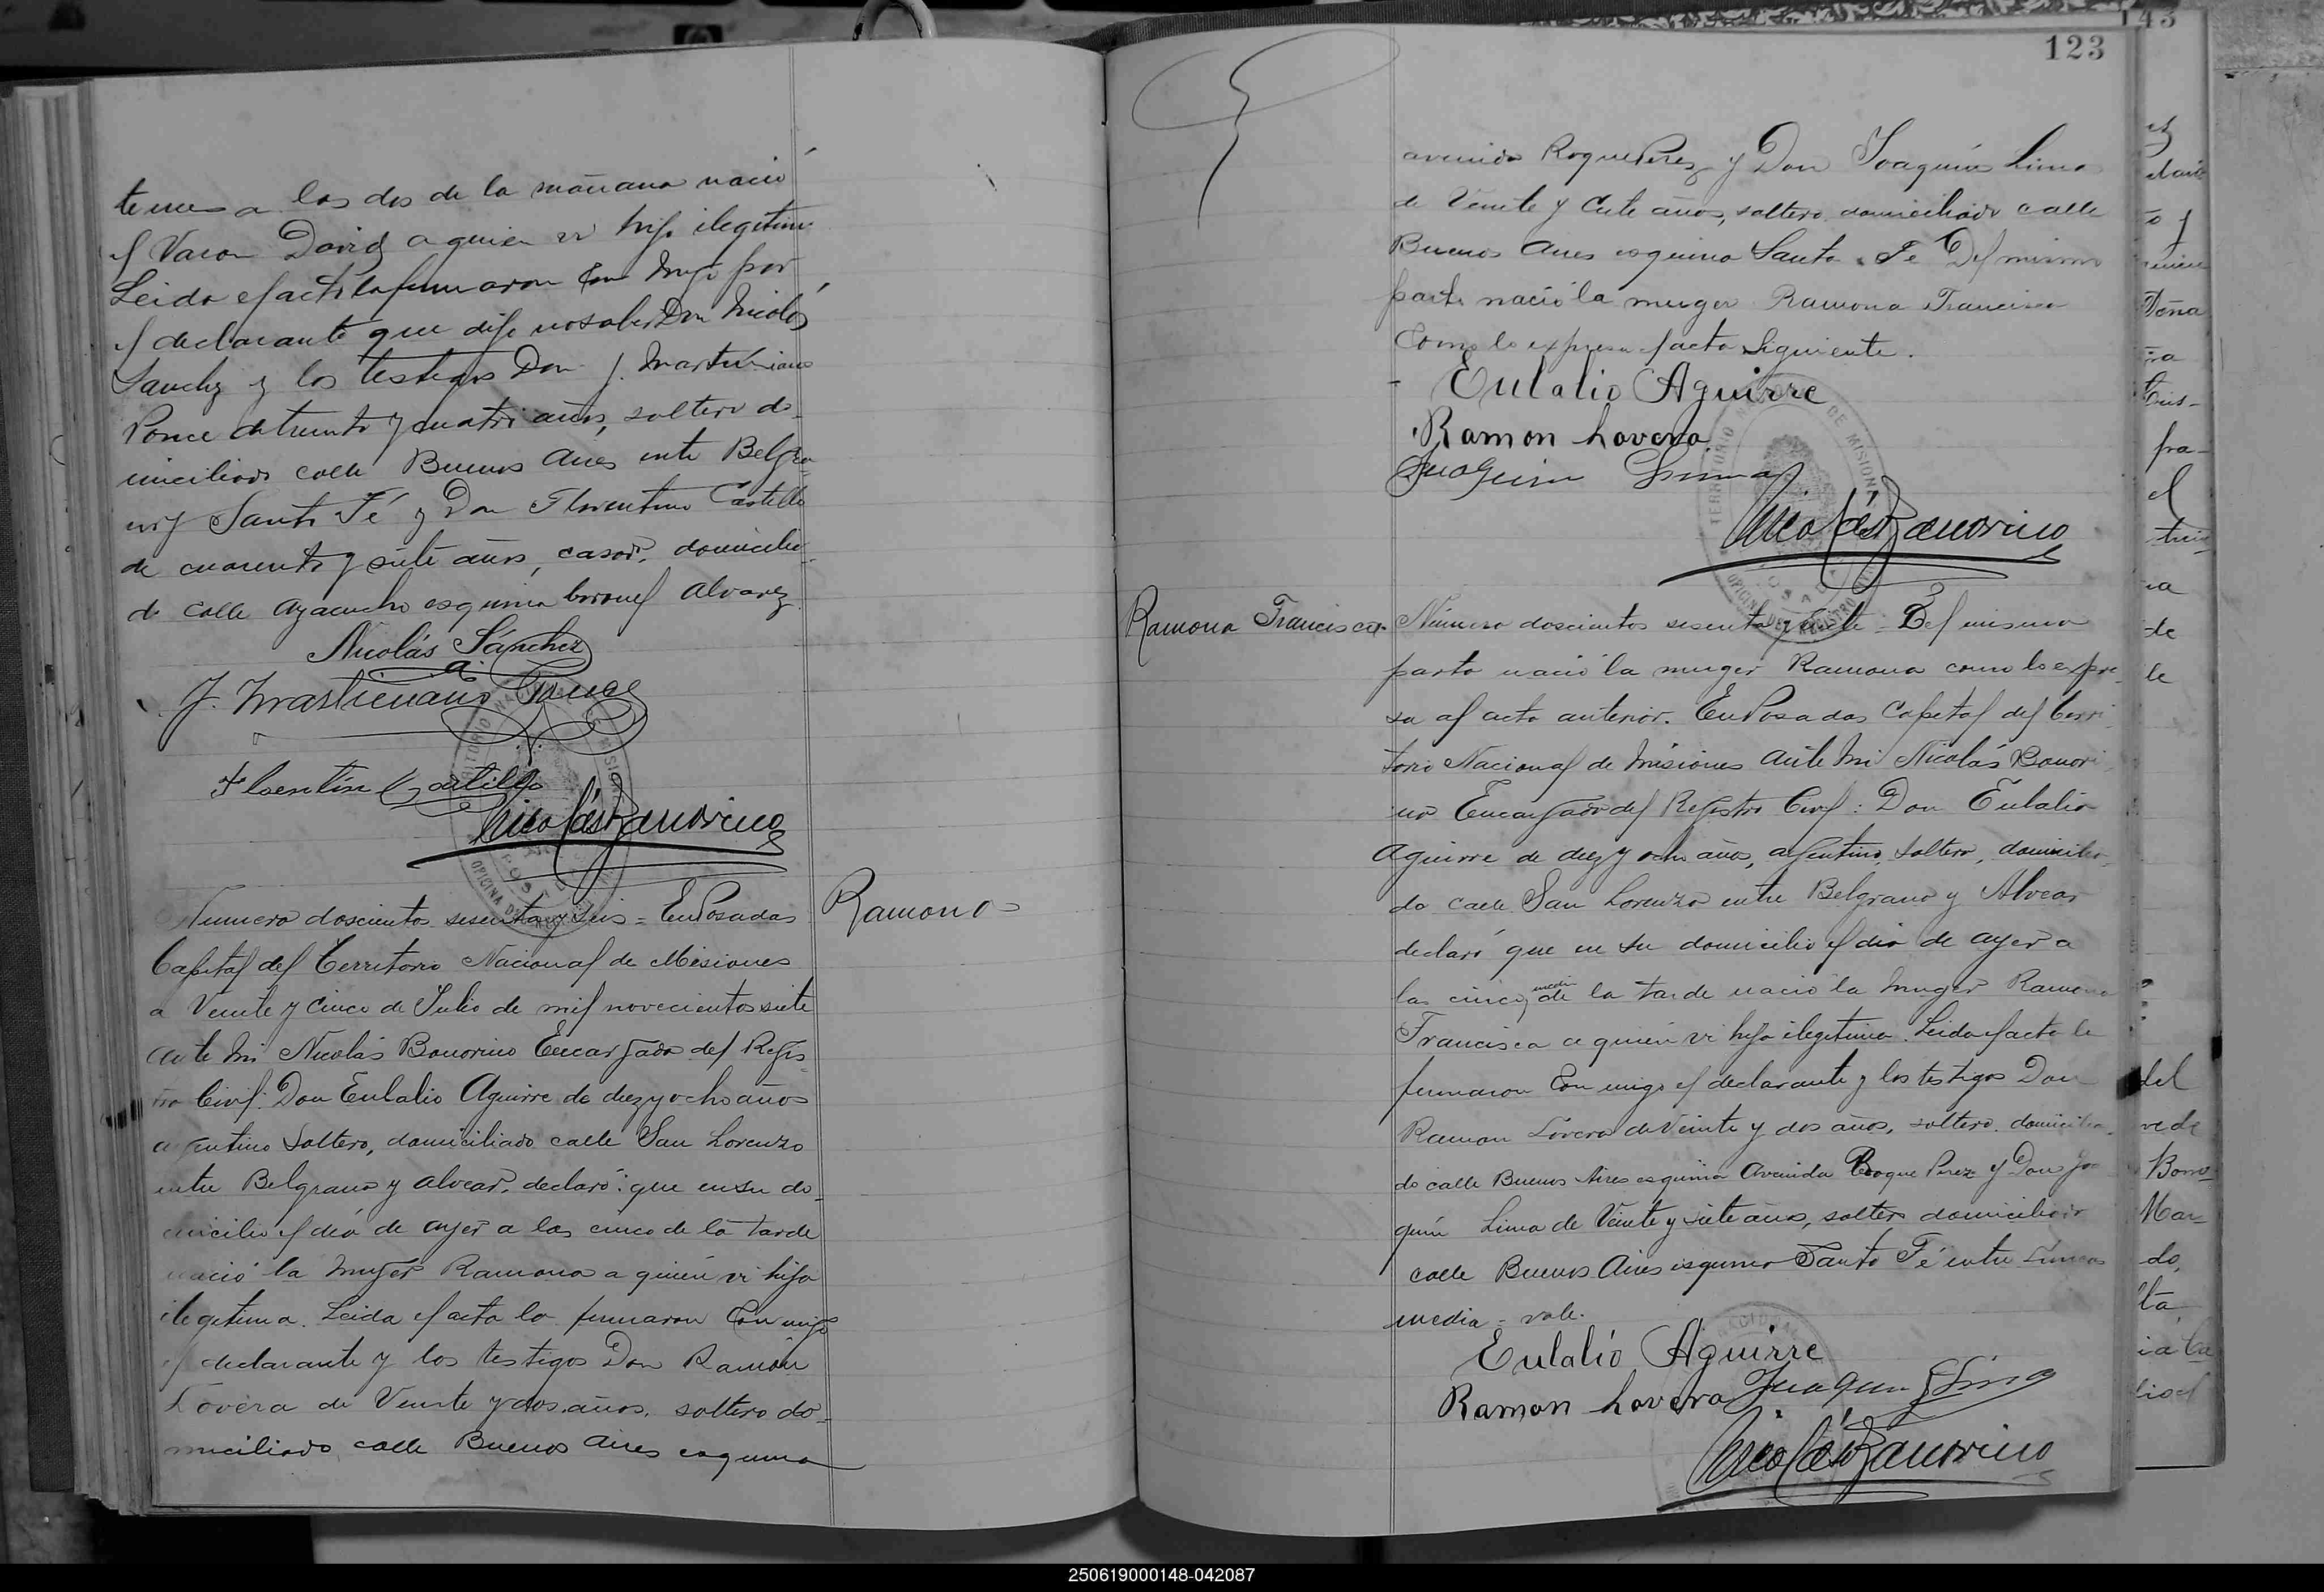 a las dos de la mañana nació
el Varon David a quien vi hijo ilegitimo
Leida el acta la firmaron con migo por
el declarante que dijo no saber Don Nicolás
Sanchez y los testigos Don J. Martiniano
Ponce de treinta y cuatro años, soltero do-
miciliado calle Buenos Aires entre Belgra-
no y Santa Fé y Don Florentino Castillo
de cuarenta y siete años, casado, domicilia-
do calle Ayacucho esquina Coronel Alvarez.
Nicolás Sánchez
J. Martiniano Ponce
Florentin Castillo
Nicolás Bonorino
Numero doscientos sesenta y seis = En Posadas
Capital del Territorio Nacional de Misiones
a Veinte y cinco de Julio de mil novecientos siete
ante mi Nicolás Bonorino Encargado del Regis-
tro Civil: Don Eulalio Aguirre de diez y ocho años
argentino soltero, domiciliado calle San Lorenzo
entre Belgrano y Alvear, declaró: que en su do-
micilio el dia de ayer a las cinco de la tarde
nació la muger Ramona a quien vi hija
ilegitima. Leida el acta la firmaron con migo
el declarante y los testigos Don Ramón
Lovera de Veinte y dos años, soltero do-
miciliado calle Buenos Aires esquina
Ramona
123
avenida Roque Perez y Don Joaquin Lima
de Veinte y siete años, soltero domiciliado calle
Buenos Aires esquina Santa Fé Del mismo
parto nació la muger Ramona Francisca
Como lo expresa el acta siguiente.
Eulalio Aguirre
Ramon Lovera
Juaquin Lima
Nicolás Bonorino
TERRITORIO NACIONAL DE MISIONES
OFICINA DEL REGISTRO CIVIL
POSADAS
Ramona Francisca
Número doscientos sesenta y siete = Del mismo
parto nació la muger Ramona como lo expre-
sa al acta anterior. En Posadas Capital del Terri-
torio Nacional de Misiones ante mi Nicolás Bonori-
no Encargado del Registro Civil: Don Eulalio
Aguirre de diez y ocho años, argentino, soltero, domicilia-
do calle San Lorenzo entre Belgrano y Alvear
declaró que en su domicilio el dia de ayer a
las cinco y media de la tarde nació la muger Ramona
Francisca a quien vi hija ilegitima. Leida el acta la
firmaron con migo el declarante y los testigos Don
Ramon Lovera de Veinte y dos años, soltero domicilia-
do calle Buenos Aires esquina Avenida Roque Perez y Don Joa-
quin Lima de Veinte y siete años, soltero domiciliado
calle Buenos Aires esquina Santa Fé entre lineas
media = vale.
Eulalio Aguirre
Ramon Lovera Juaquin Lima
Nicolás Bonorino
250619000148-042087